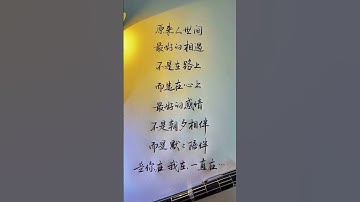 原来人世间
最好的相遇
不是在路上
而是在心上
最好的感情
不是朝夕相伴
而是默默陪伴
是你在 我在 一直在…